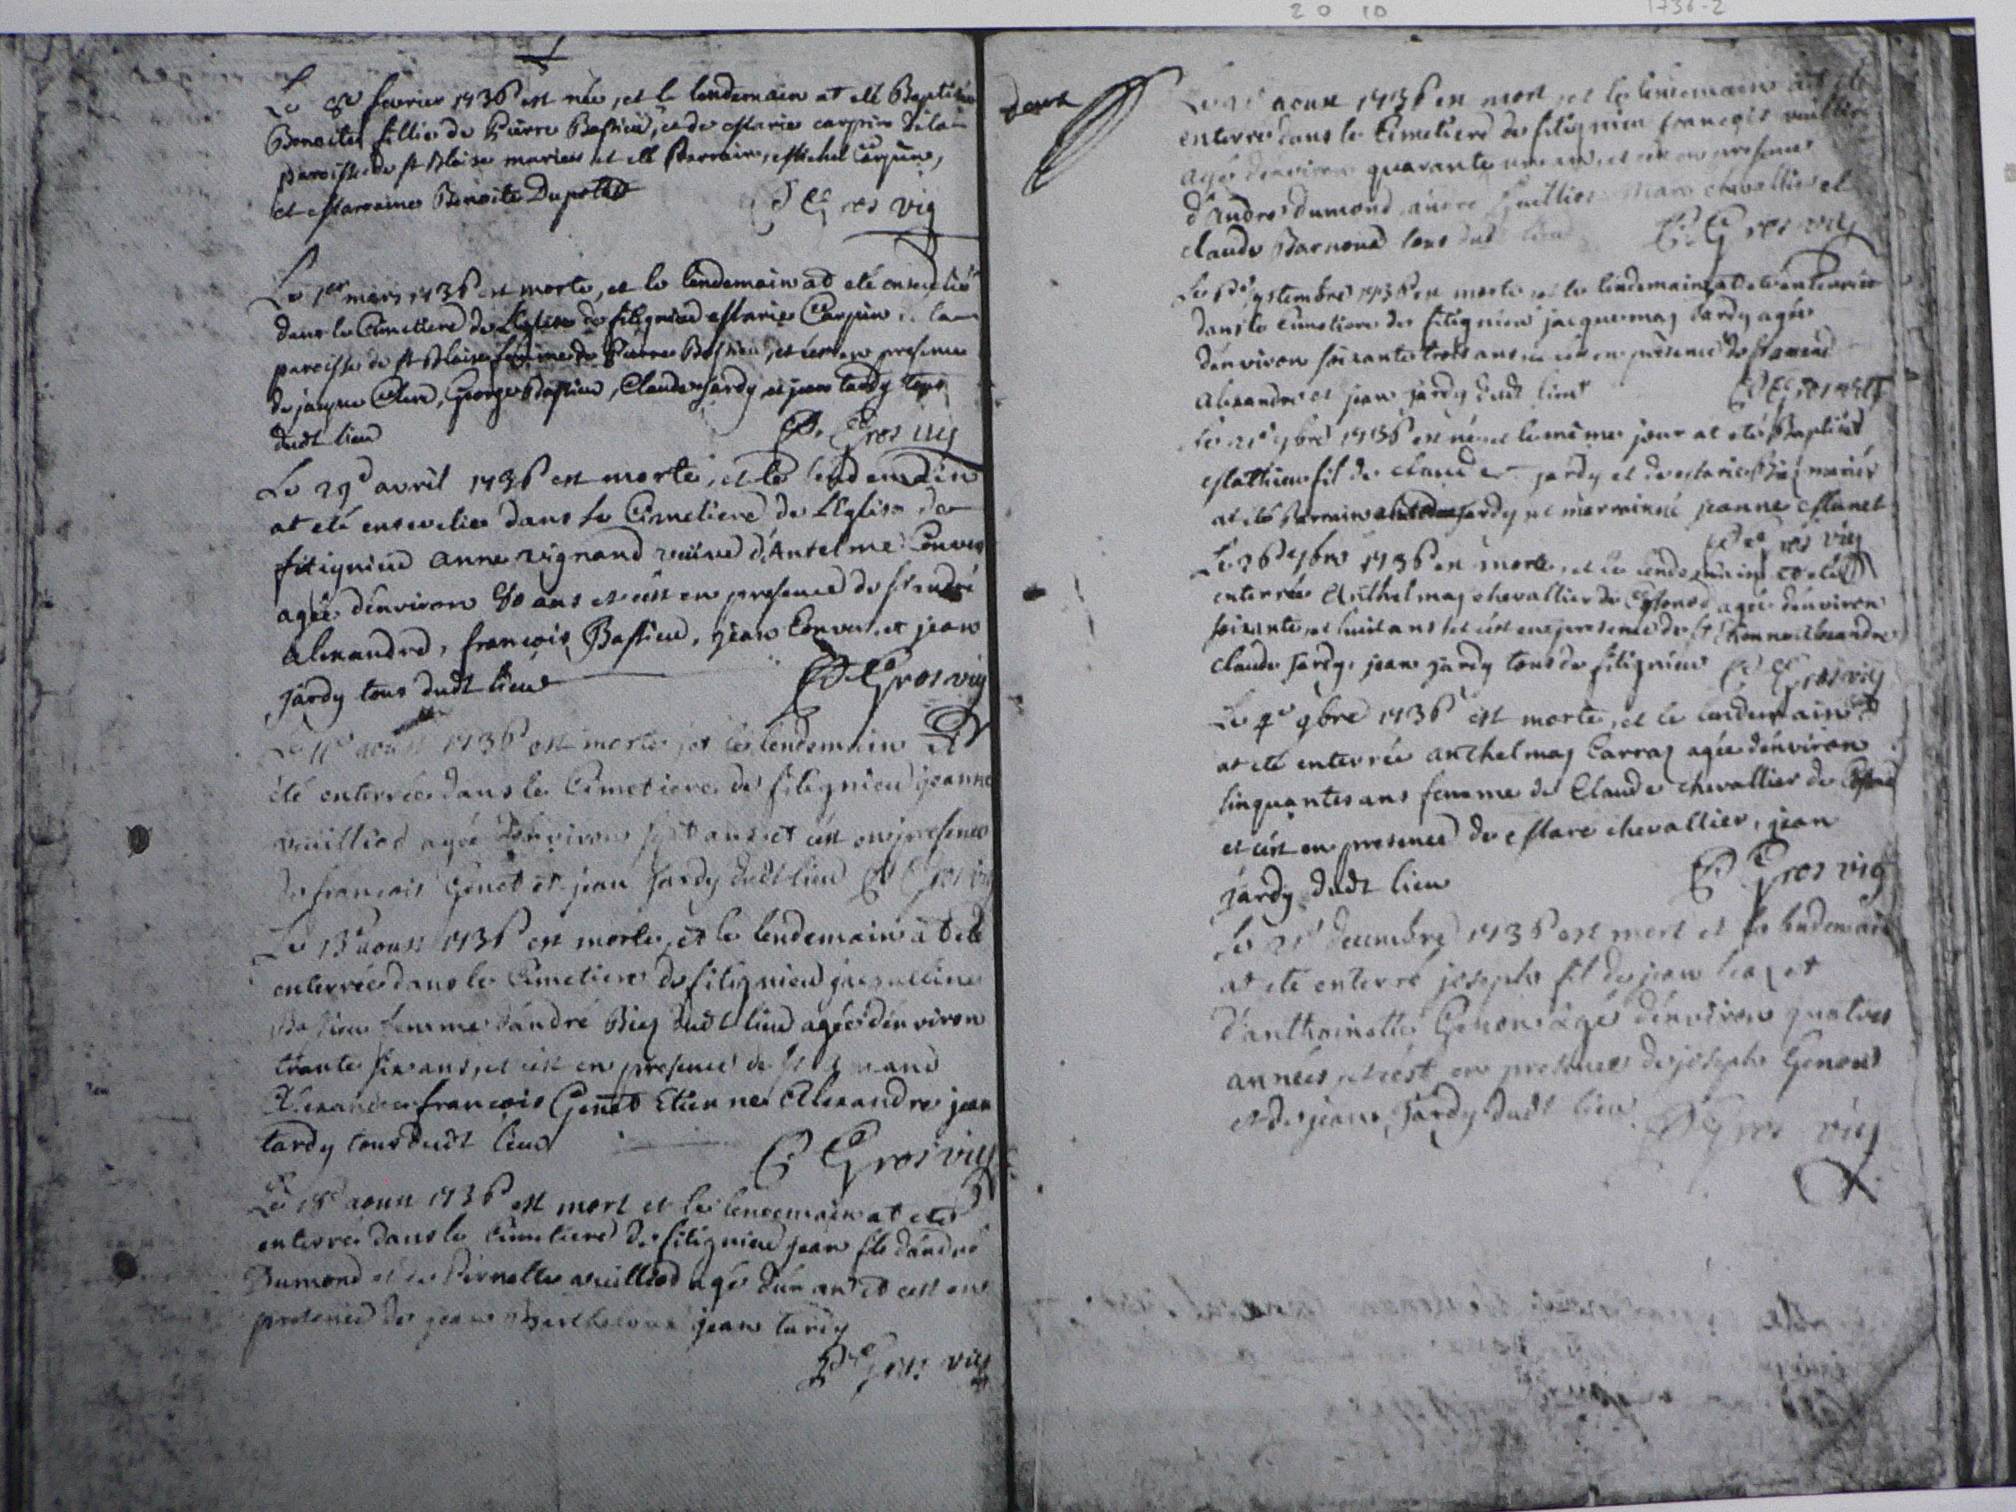 2 0 10
1736-2
Le 8e fevrier 1736 est née, et le lendemain at eté Baptisée
Benoite fillie de Pierre Bassieu, et de Marie carpin de la
paroisse de st Blaise mariés et eté Parrain, Michel Carpin,
et Marraine Benoite Dupollet
Gros vic
Le 1er mars 1736 est morte, et le lendemain at eté ensevelie
dans le Cimetiere de l'Eglise de fitignieu Marie Carpin de la
paroisse de st Blaise femme de Pierre Bassieu, et cést en presence
de jacque Clere, George Bassieu, Claude jardy, et jean tardy tous
dudt lieu
Gros vic
Le 29e avril 1736 est morte, et le lendemain
at eté ensevelie dans le Cimetiere de l'Eglise de
fitignieu anne vignand veüve d'Antelme Convers
agée d'environ 80 ans et cést en presence de st andré
alexandre, francois Bassieu, jean Convers, et jean
jardy tous dudt lieu
Gros vic
Le 11e aoust 1736 est morte, et le lendemain at
été enterrée dans le Cimetiere de fitignieu jeanne
vuilliod agée d'environ sept ans et cést en presence
de francois Genet et jean jardy dudt lieu Gros vic
Le 13e aoust 1736 est morte, et le lendemain at eté
enterrée dans le Cimetiere de fitignieu jacqueline
Bassieu femme d'andré Biez dudt lieu agée d'environ
trante six ans, et cést en presence de
Alexandre francois Genet Etienne Alexandre jean
tardy tous dudt lieu
Gros vic
Le 18e aoust 1736 est mort et le lendemain at eté
enterré dans le Cimetiere de fitignieu jean fils d'andré
Dumond et de Pernette vuilliod agé d'un an et cest en
presence de jean Bartheloud jean tardy
Gros vic
deux
Le 21e aoust 1736 est mort, et le lendemain at eté
enterré dans le Cimetiere de fitignieu francois vuilliod
agé d'environ quarante un ans, et cést en presence
d'Andre dumond, Marc chevallier et
claude Barnoud tous dudt lieu Gros vic
Le 6e septembre 1736 est morte et le lendemain at eté enterrée
dans le Cimetiere de fitignieu jacquemaz tardy agée
d'environ soixante trois ans et cést en présence de
Alexandre et jean jardy dudt lieu Gros vic
Le 21e 7bre 1736 est né et le même jour at eté Baptisé
Mathieu fil de claude jardy et de Marie Biez mariés
at été Parrain jardy et marraine jeanne Manet
Gros vic
Le 26e 7bre 1736 est morte, et le lendemain at eté
enterrée Anthelmaz chevallier de agée d'environ
soixante et huit ans et cést en presence de Etienne alexandre
claude jardy, jean jardy tous de fitignieu Gros vic
Le 4e 9bre 1736 est morte, et le lendemain
at eté enterrée anthelmaz Carraz agée d'environ
sinquantes ans femme de Claude chevallier de
et cést en presence de Marc chevallier, jean
jardy dudt lieu Gros vic
Le 21e decembre 1736 est mort et le lendemain
at eté enterré joseph fil de jean et
d'anthoinette Genon agé d'environ quatres
années, et cést en presence de joseph Genon
et de jean jardy dudt lieu
Gros vic